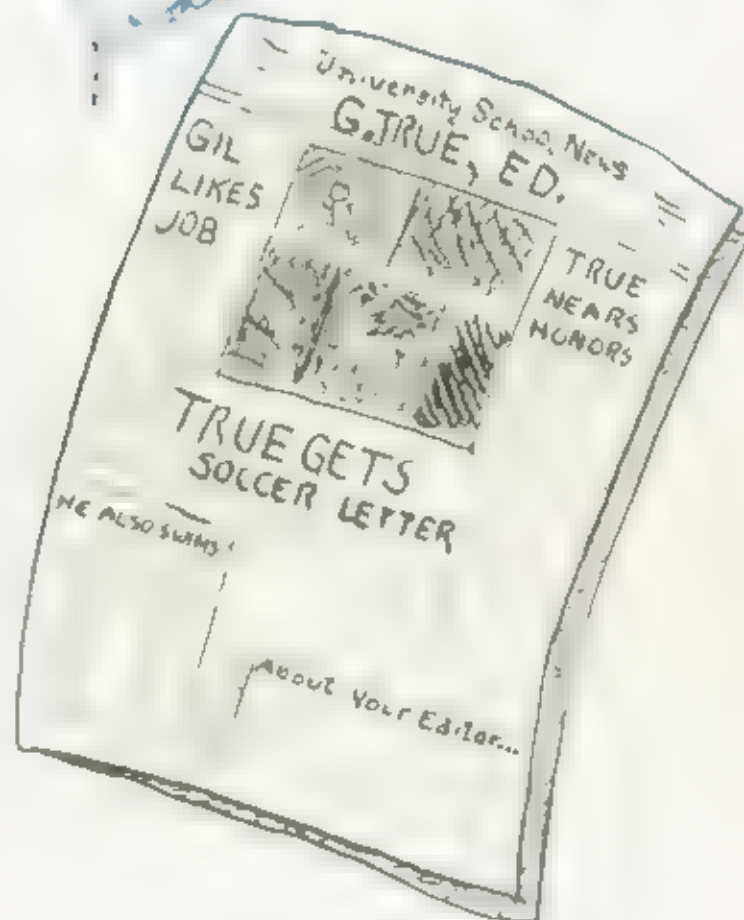 University School News
G.TRUE, ED.
GIL
LIKES
JOB
TRUE
NEARS
HONORS
TRUE GETS
SOCCER LETTER
HE ALSO SWIMS
About Your Editor...